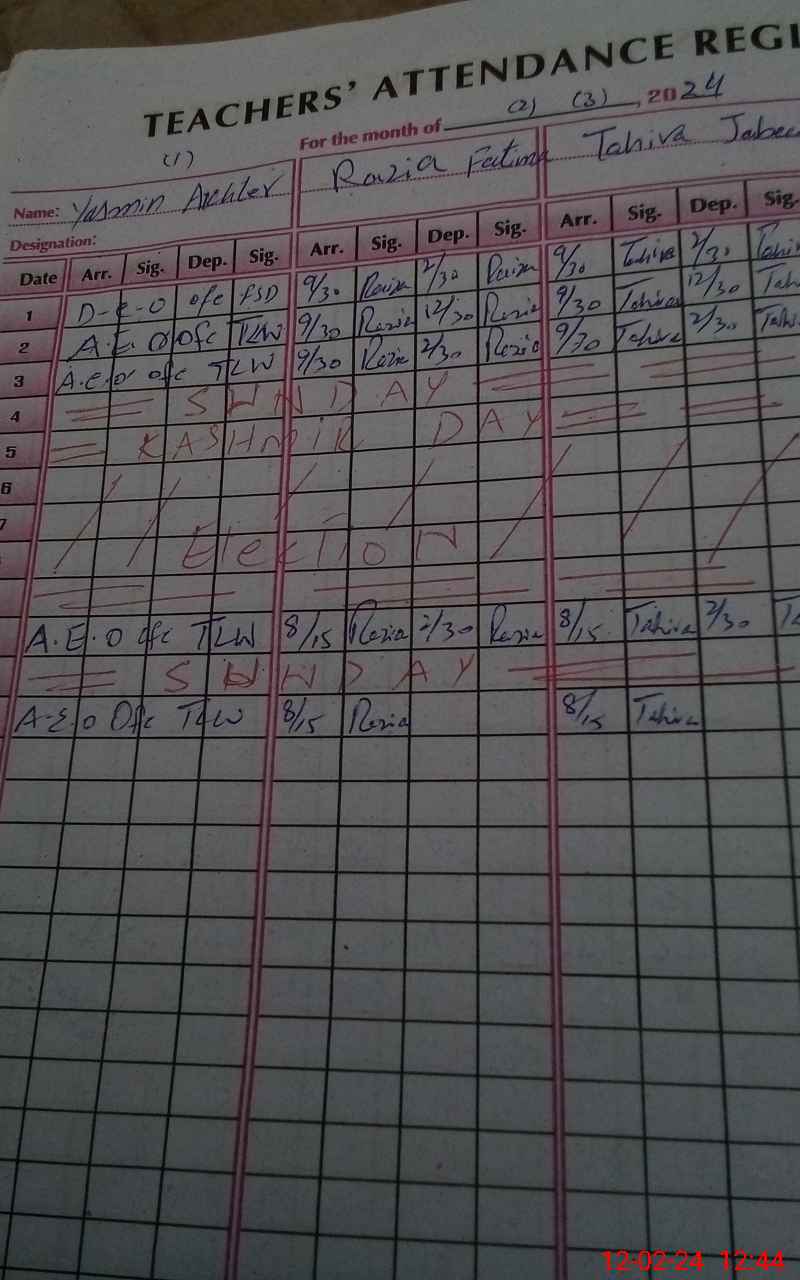 TEACHERS' ATTENDANCE REGI
For the month of , 2024
(1) (2) (3)
Name: Yasmin Akhter Razia Fatima Tahira Jabee
Designation:
Date Arr. Sig. Dep. Sig. Arr. Sig. Dep. Sig. Arr. Sig. Dep. Sig.
1 D-E-O ofc FSD 9/30 Razia 2/30 Razia 9/30 Tahira 2/30 Tahira
2 A.E.O Ofc TLW 9/30 Razia 12/30 Razia 9/30 Tahira 12/30 Tah
3 A.e.or ofc TLW 9/30 Razia 2/30 Razia 9/30 Tahira 2/30 Tahi
4 SUNDAY
5 KASHMIR DAY
6
7
ElekTioN
A.E.O ofc TLW 8/15 Razia 2/30 Razia 8/15 Tahira 2/30 Ta
SUNDAY
A-E.o Ofc TLW 8/15 Razia 8/15 Tahira
12-02-24 12:44